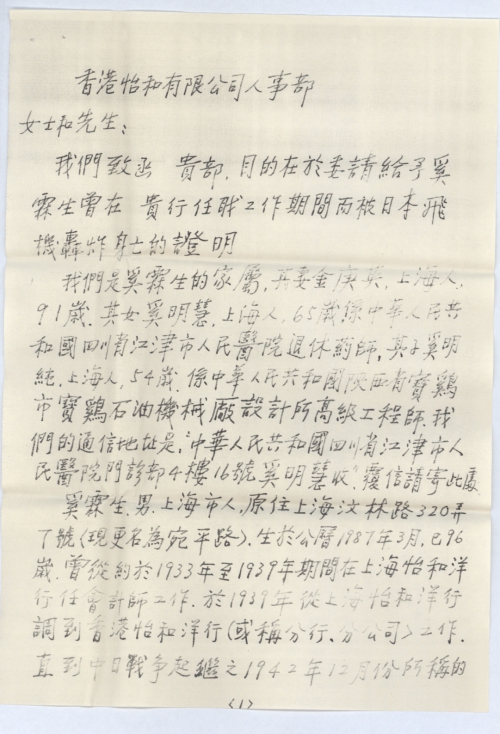 香港怡和有限公司人事部
女士和先生:
我們致函 貴部,目的在於委請給予奚
霖生曾在 貴行任職工作期間而被日本飛
機轟炸身亡的證明
我們是奚霖生的家屬,其妻金庚英,上海人,
91歲,其女奚明慧,上海人,65歲係中華人民共
和國四川省江津市人民醫院退休葯師,其子奚明
純,上海人,54歲,係中華人民共和國陝西省寶鷄
市寶鷄石油機械廠設計所高級工程師,我
們的通信地址是,"中華人民共和國四川省江津市人
民醫院門診部4樓16號奚明慧收",覆信請寄此處
奚霖生,男,上海市人,原住上海汶林路320弄
7號(現更名為宛平路),生於公曆1987年3月,已96
歲,曾從約於1933年至1939年期間在上海怡和洋
行任會計師工作,於1939年從上海怡和洋行
調到香港怡和洋行(或稱分行、分公司)工作,
直到中日戰争起繼之1942年12月份所稱的
(1)